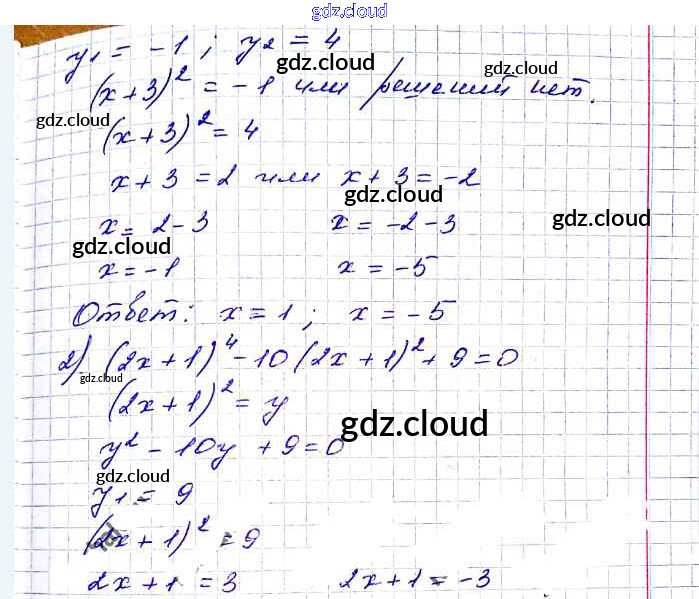 gdz.cloud
y₁ = -1 ; y₂ = 4
gdz.cloud
gdz.cloud
(x+3)² = -1 или решений нет.
gdz.cloud
(x+3)² = 4
x + 3 = 2 или x + 3 = -2
gdz.cloud
x = 2 - 3 x = -2 - 3
gdz.cloud
gdz.cloud
x = -1 x = -5
Ответ: x = 1 ; x = -5
2) (2x + 1)⁴ - 10 (2x + 1)² + 9 = 0
gdz.cloud
(2x + 1)² = y
gdz.cloud
y² - 10y + 9 = 0
gdz.cloud
y₁ = 9
(2x + 1)² = 9
2x + 1 = 3 2x + 1 = -3